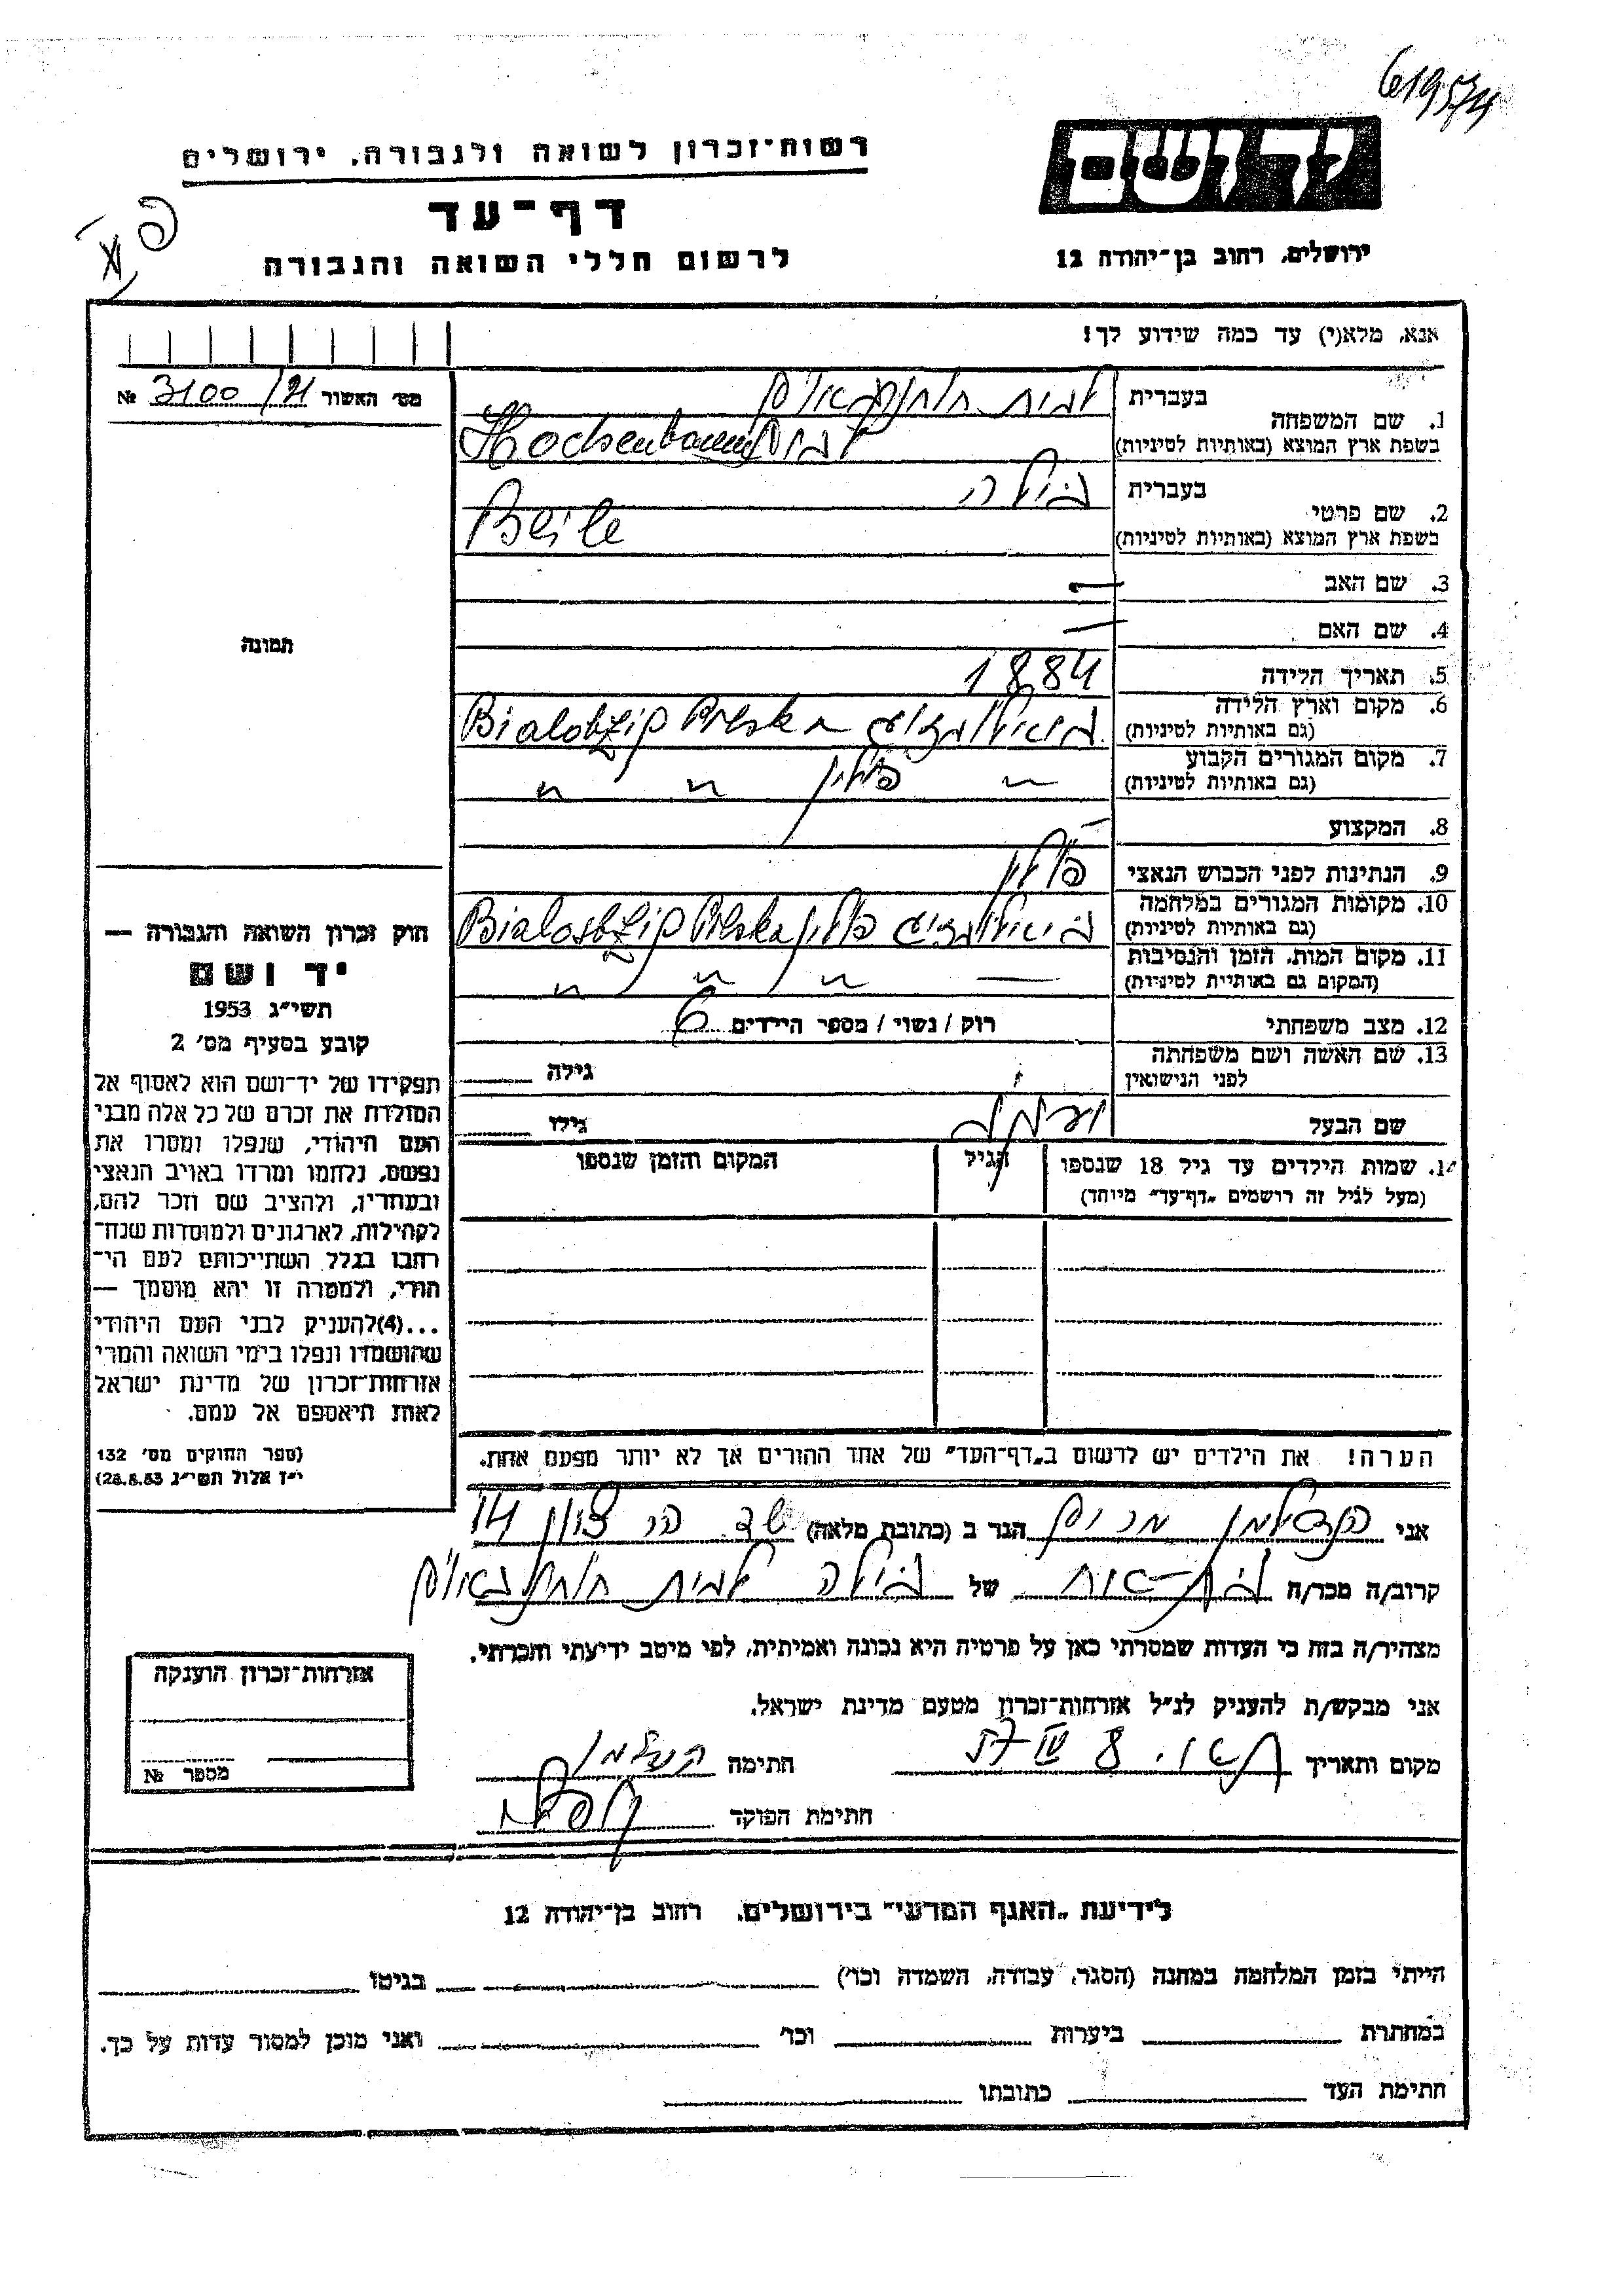 619574
יד ושם
ירושלים, רחוב בן־יהודה 12
רשות־זכרון לשואה ולגבורה, ירושלים
דף־עד
לרשום חללי השואה והגבורה
אנא, מלא(י) עד כמה שידוע לך!
מס׳ האשור 3100/21 №
תמונה
1. שם המשפחה
בעברית לבית
בשפת ארץ המוצא (באותיות לטיניות) Hochenbaum
2. שם פרטי
בעברית ביילה
בשפת ארץ המוצא (באותיות לטיניות) Beile
3. שם האב —
4. שם האם —
5. תאריך הלידה 1884
6. מקום וארץ הלידה
(גם באותיות לטיניות) Polska
7. מקום המגורים הקבוע
(גם באותיות לטיניות) — פולין " "
8. המקצוע —
9. הנתינות לפני הכבוש הנאצי פולין
10. מקומות המגורים במלחמה
(גם באותיות לטיניות) פולין Polska
11. מקום המות, הזמן והנסיבות
(המקום גם באותיות לטיניות) — " " "
12. מצב משפחתי רוק / נשוי / מספר הילדים 6
13. שם האשה ושם משפחתה
לפני הנישואין
גילה
שם הבעל
גילו
14. שמות הילדים עד גיל 18 שנספו
(מעל לגיל זה רושמים „דף־עד״ מיוחד)
הגיל
המקום והזמן שנספו
הערה! את הילדים יש לרשום ב„דף־העד״ של אחד ההורים אך לא יותר מפעם אחת.
חוק זכרון השואה והגבורה —
יד ושם
תשי״ג 1953
קובע בסעיף מס׳ 2
תפקידו של יד־ושם הוא לאסוף אל
המולדת את זכרם של כל אלה מבני
העם היהודי, שנפלו ומסרו את
נפשם, נלחמו ומרדו באויב הנאצי
ובעוזריו, ולהציב שם וזכר להם,
לקהילות, לארגונים ולמוסדות שנח־
רבו בגלל השתייכותם לעם הי־
הודי, ולמטרה זו יהא מוסמך —
...(4)להעניק לבני העם היהודי
שהושמדו ונפלו בימי השואה והמרי
אזרחות־זכרון של מדינת ישראל
לאות היאספם אל עמם.
(ספר החוקים מס׳ 132
י״ז אלול תשי״ג 28.8.53)
אני הגר ב (כתובת מלאה) שד. הר ציון 14
קרוב/ה מכר/ה בת-אחות של ביילה לבית
מצהיר/ה בזה כי העדות שמסרתי כאן על פרטיה היא נכונה ואמיתית, לפי מיטב ידיעתי והכרתי.
אני מבקש/ת להעניק לנ״ל אזרחות־זכרון מטעם מדינת ישראל.
מקום ותאריך
חתימה
חתימת הפוקד
אזרחות־זכרון הוענקה
מספר №
לידיעת „האגף המדעי״ בירושלים, רחוב בן־יהודה 12
הייתי בזמן המלחמה במחנה (הסגר, עבודה, השמדה וכו׳) בגיטו
במחתרת ביערות וכו׳ ואני מוכן למסור עדות על כך.
חתימת העד כתובתו